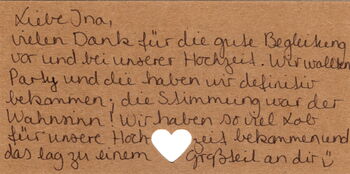 Liebe Ina,
vielen Dank für die gute Begleitung
vor und bei unserer Hochzeit. Wir wollten
Party und die haben wir definitiv
bekommen; die Stimmung war der
Wahnsinn! Wir haben so viel Lob
für unsere Hochzeit bekommen und
das lag zu einem Großteil an dir ü